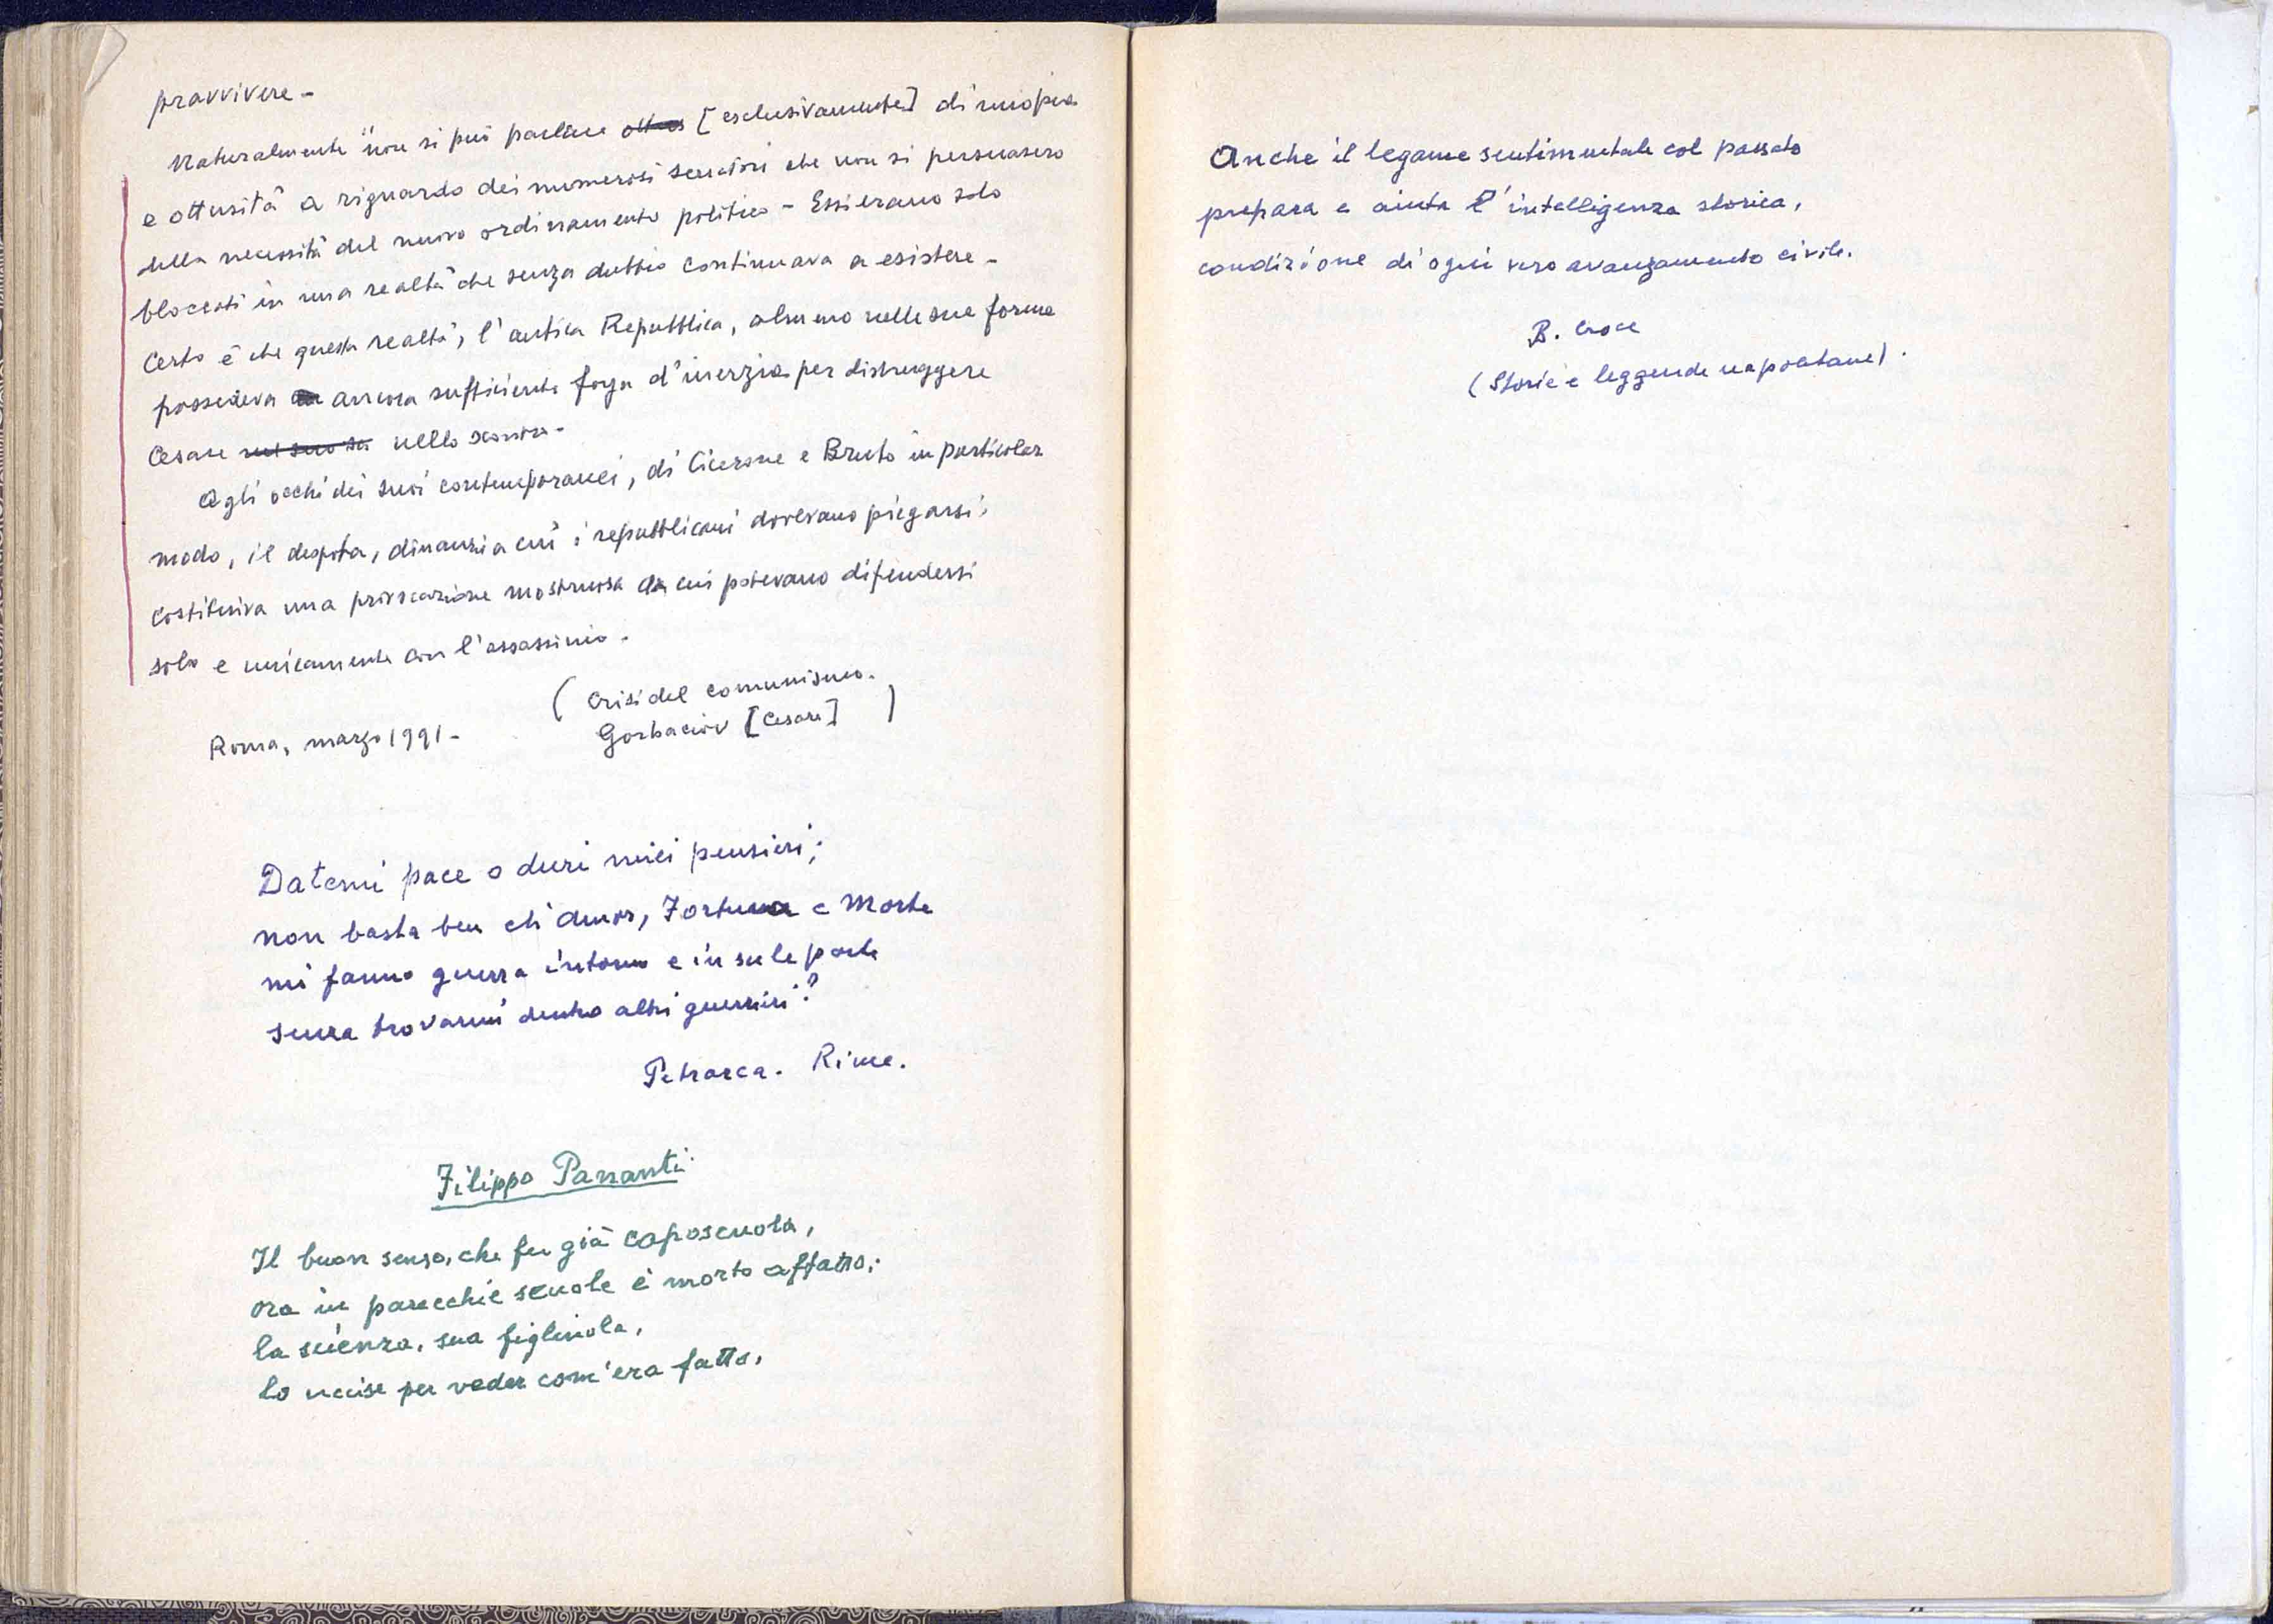 pravvivere -
Naturalmente non si può parlare [esclusivamente] di miopia
e ottusità a riguardo dei numerosi senatori che non si persuasero
della necessità del nuovo ordinamento politico - Essi erano solo
bloccati in una realtà che senza dubbio continuava a esistere -
Certo è che questa realtà, l'antica Repubblica, almeno nelle sue forme
possedeva ancora sufficiente forza d'inerzia per distruggere
Cesare nello scontro -
Agli occhi dei suoi contemporanei, di Cicerone e Bruto in particolar
modo, il despota, dinanzi a cui i repubblicani dovevano piegarsi,
costituiva una provocazione mostruosa da cui potevano difendersi
solo e unicamente con l'assassinio.
( Crisi del comunismo.
Roma, marzo 1991 - Gorbaciov [Cesare] )
Datemi pace o duri miei pensieri;
non basta ben ch'amor, Fortuna e Morte
mi fanno guerra intorno e in su le porte
senza trovarmi dentro altri guerrieri?
Petrarca. Rime.
Filippo Pananti
Il buon senso, che fu già caposcuola,
ora in parecchie scuole è morto affatto;
la scienza, sua figliuola,
lo uccise per veder com'era fatto.
Anche il legame sentimentale col passato
prepara e aiuta l'intelligenza storica,
condizione di ogni vero avanzamento civile.
B. Croce
(Storie e leggende napoletane).